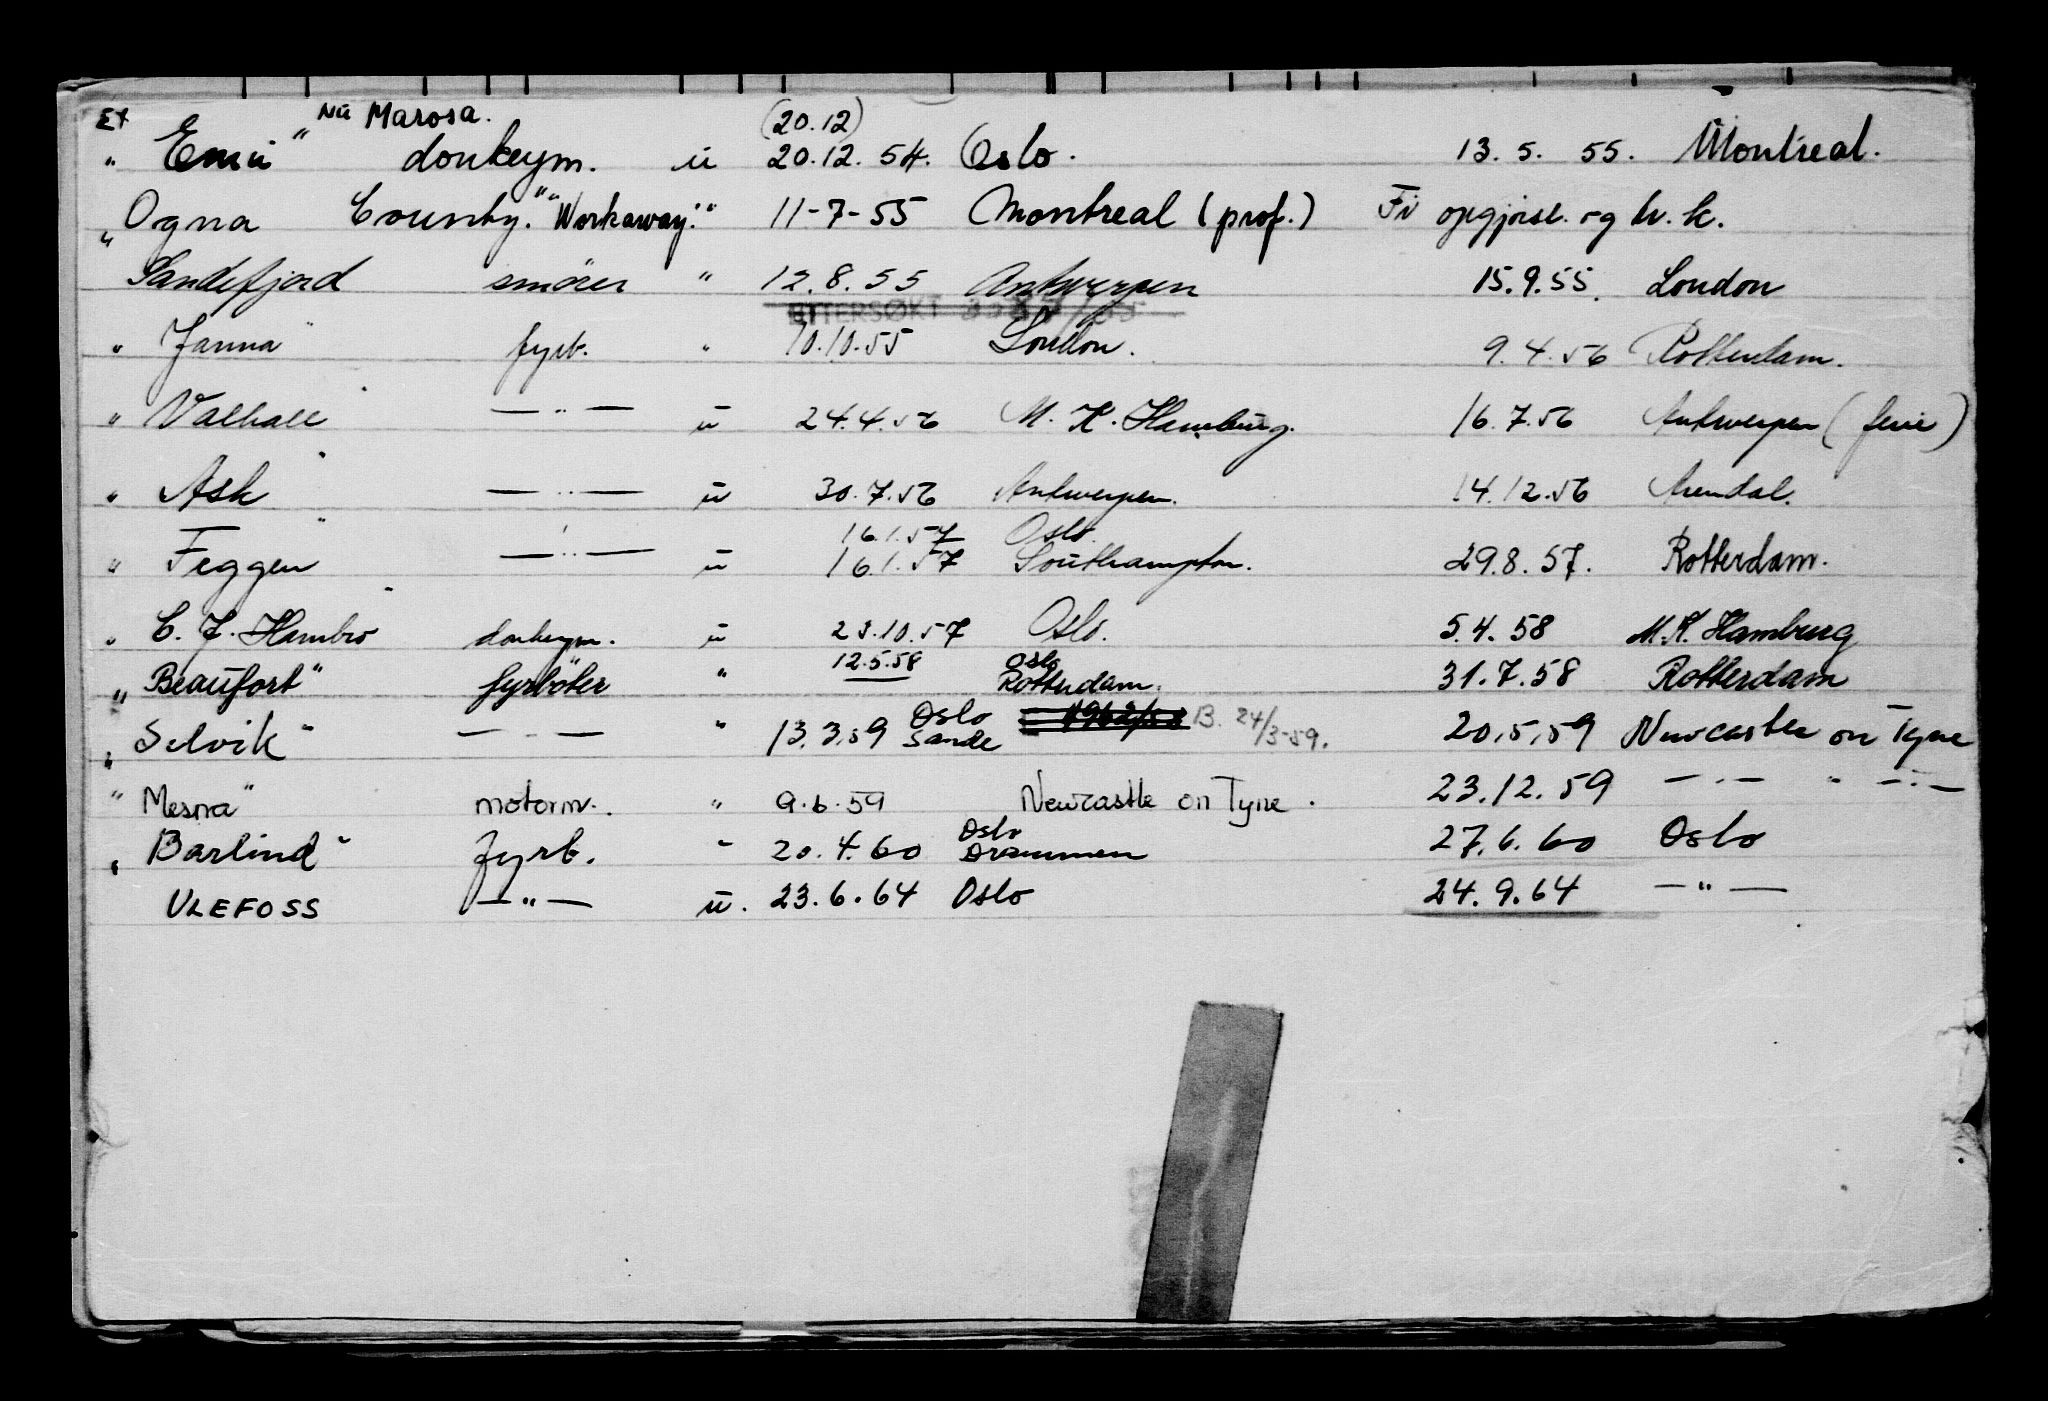 Ex Nu Marosa. (20.12)
" Emu " donkeym. u 20.12.54. Oslo. 13.5. 55. Montreal.
" Ogna County. " "Workaway." " 11-7-55 Montreal (prof.) Fi oppgjøist. og h.k.
" Sandefjord smører " 12.8.55 Antwerpen 15.9.55. London
ETTERSØKT
" Janna " fyrb. " 10.10.55 London. 9.4.56 Rotterdam.
" Valhall " — " — u 24.4.56 M.K. Hamburg. 16.7.56 Antwerpen (ferie)
" Ask " — " — u 30.7.56 Antwerpen. 14.12.56 Arendal.
16.1.57 Oslo.
" Feggen " — " — u 16.1.57 Southampton. 29.8.57. Rotterdam.
" C.J. Hambro " donkeym. u 23.10.57 Oslo. 5.4.58 M.K. Hamburg
12.5.58 Oslo
" Beaufort " fyrbøter " Rotterdam. 31.7.58 Rotterdam
Oslo B. 24/3-59.
" Selvik " — " — " 13.3.59 Sande 20.5.59 Newcastle on Tyne
" Mesna " motorm. " 9.6.59 Newcastle on Tyne. 23.12.59 — " — " — " —
Oslo
" Barlind " fyrb. " 20.4.60 Drammen 27.6.60 Oslo
ULEFOSS — " — u. 23.6.64 Oslo 24.9.64 — " —